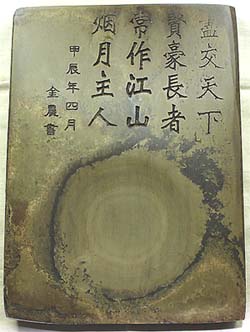 盡交天下
賢豪長者
常作江山
烟月主人
甲辰年四月
金農書